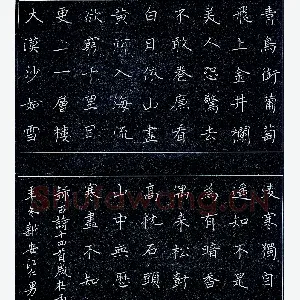 青鳥銜葡萄
飛上金井欄
美人恐驚去
不敢卷簾看
白日依山盡
黃河入海流
欲窮千里目
更上一層樓
大漠沙如雪
凌寒獨自
遙知不是
為有暗香
偶來松樹
高枕石頭
山中無歷
寒盡不知
詩十四首歲在
新安 男